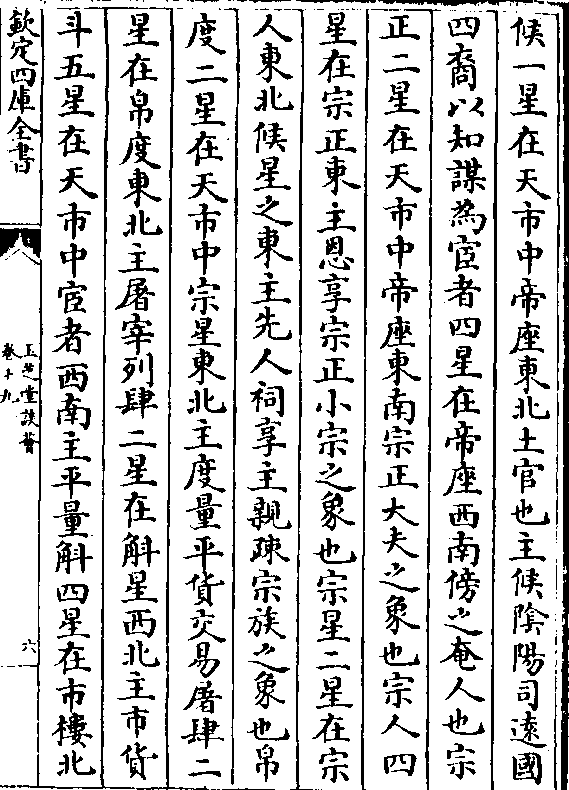 候一星在天市中帝座東北土官也主候隂陽司逺國
四裔以知謀為宦者四星在帝座西南傍之奄人也宗
正二星在天市中帝座東南宗正大夫之象也宗人四
星在宗正東主恩享宗正小宗之象也宗星二星在宗
人東北候星之東主先人祠享主親疎宗族之象也帛
度二星在天市中宗星東北主度量平貨交易屠肆二
星在帛度東北主屠宰列肆二星在斛星西北主市貨
斗五星在天市中宦者西南主平量斛四星在市樓北
欽定四庫全書
玉芝堂談薈
卷十九
六